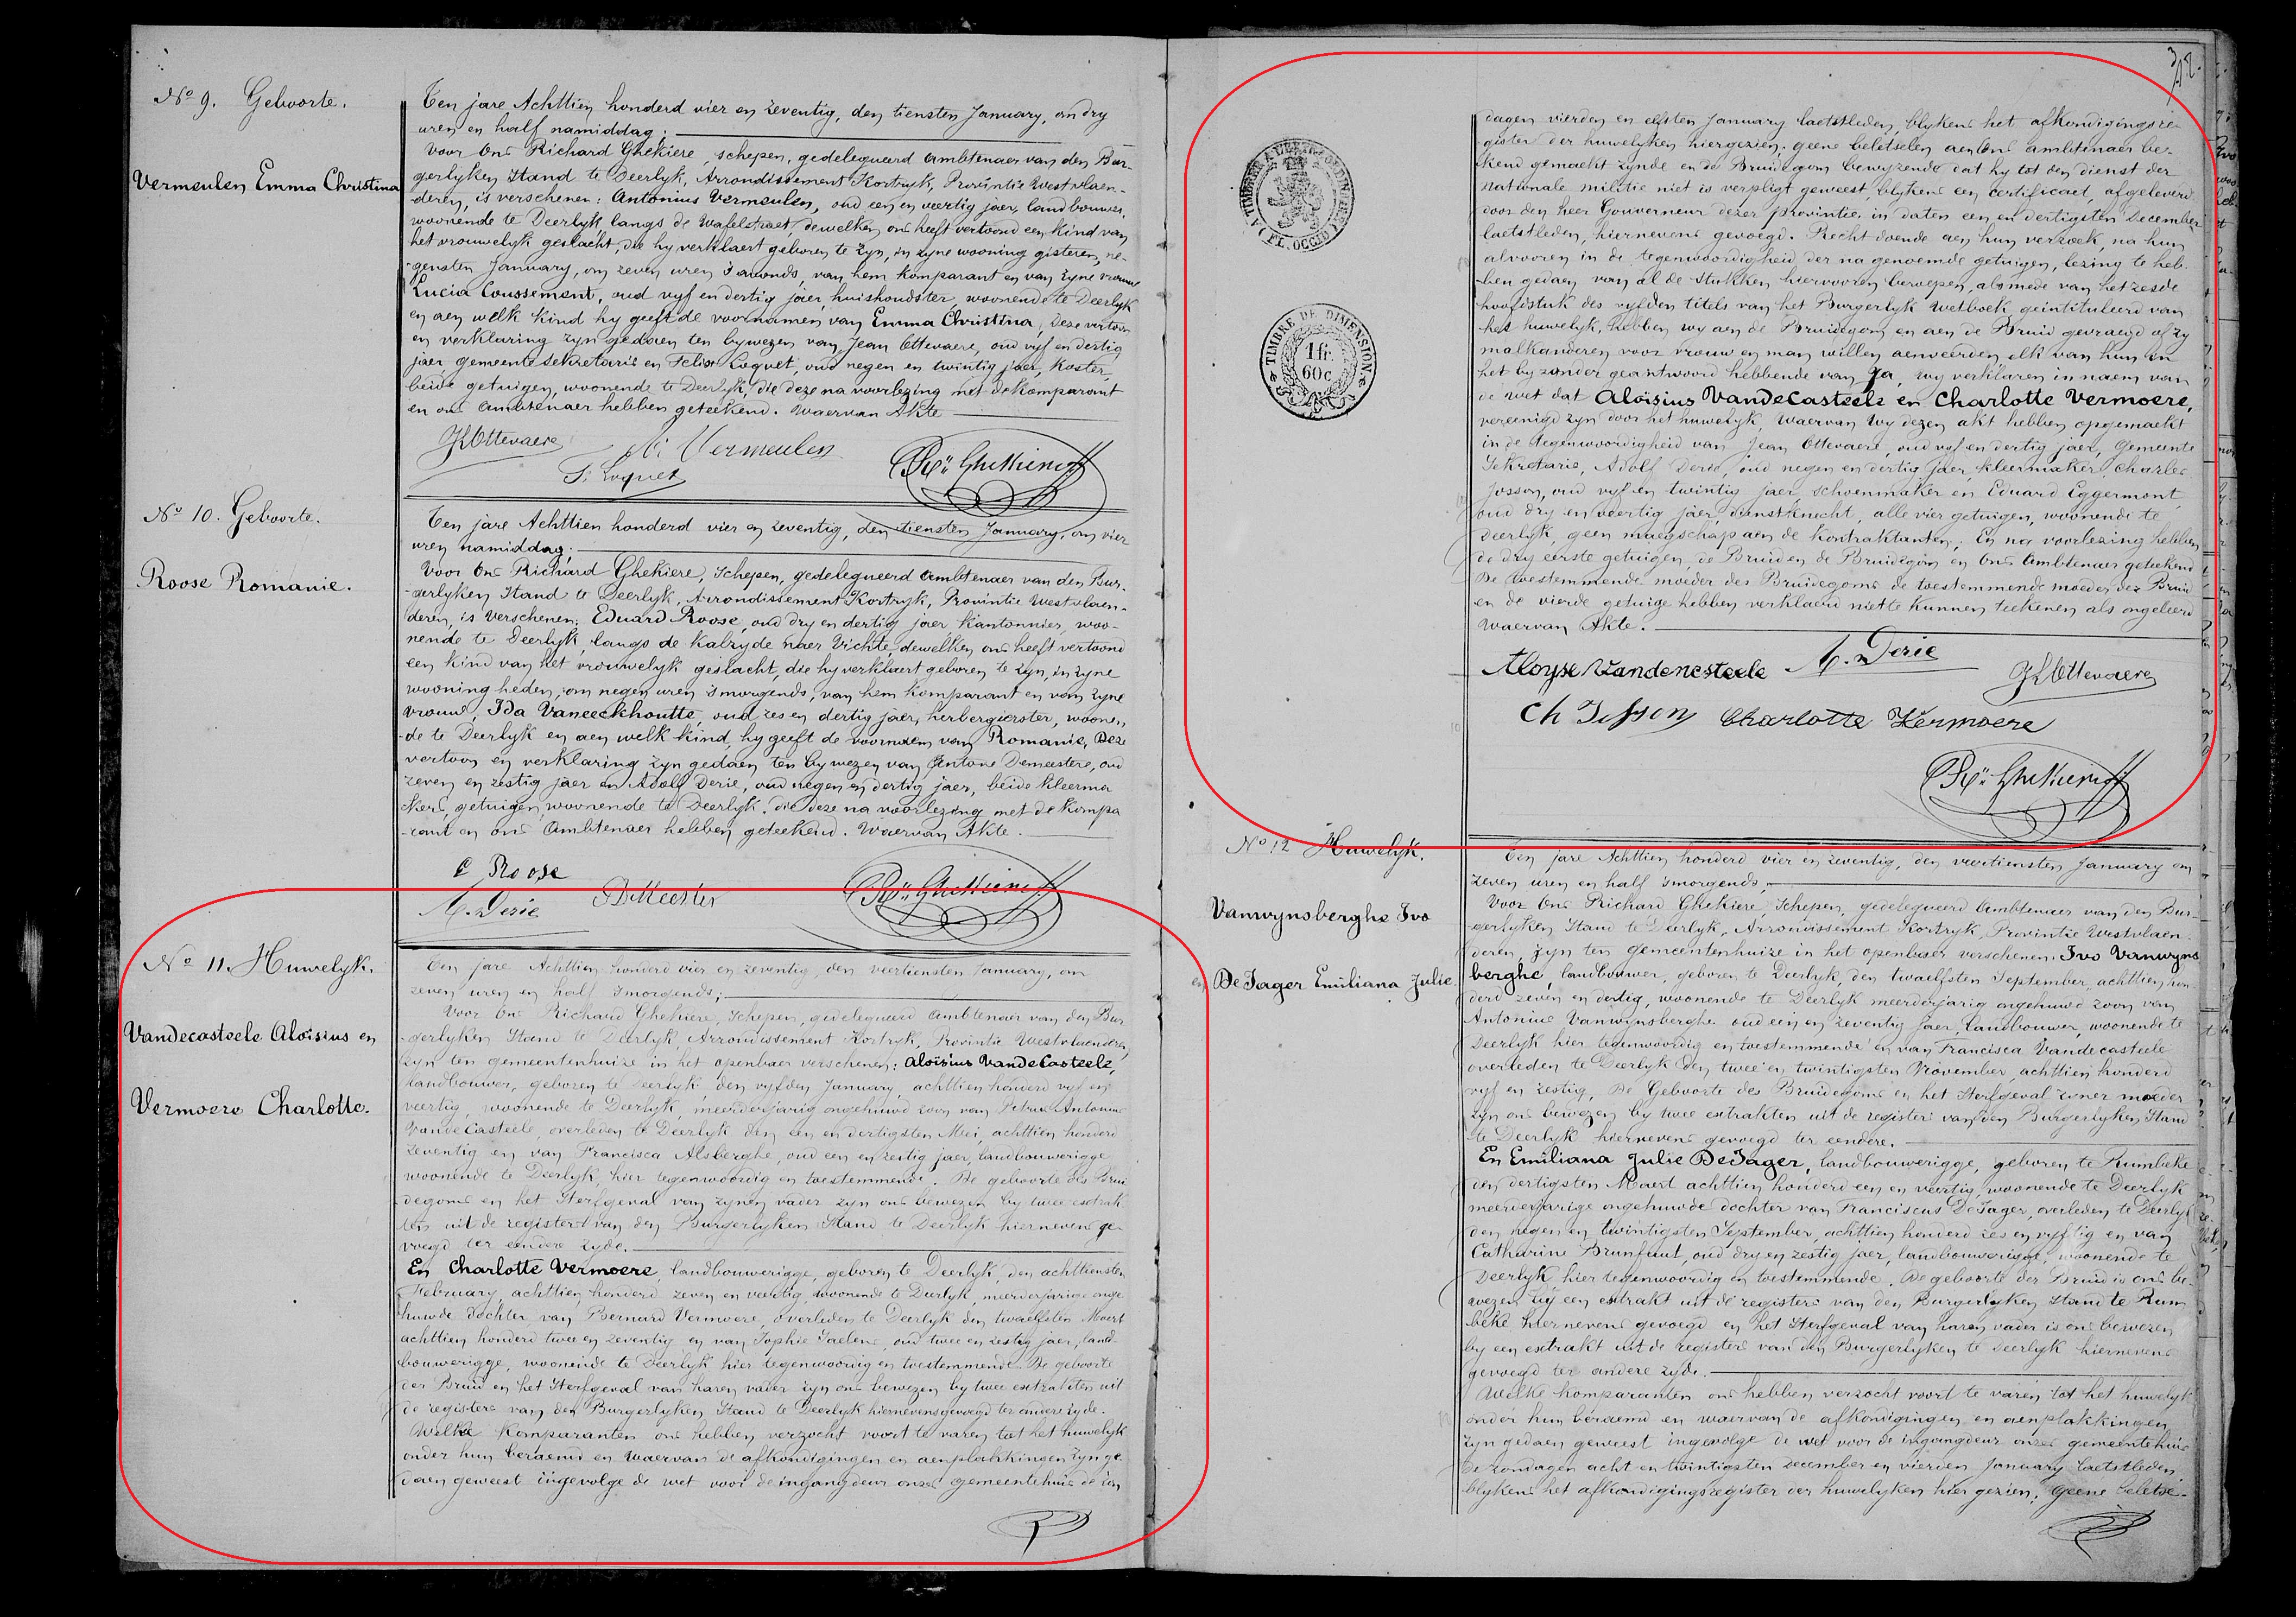 Nº 9. Geboorte.
Vermeulen Emma Christina
Ten jare Achttien honderd vier en zeventig, den tiensten January, om dry
uren en half namiddag;
Voor Ons Richard Ghekiere, schepen, gedelegueerd Ambtenaer van den Bur-
gerlyken Stand te Deerlyk, Arrondissement Kortryk, Provintie Westvlaen-
deren, is verschenen: Antonius Vermeulen, oud een en veertig jaer, landbouwer,
woonende te Deerlyk, langs de Wafelstraet, dewelken ons heeft vertoond een kind van
het vrouwelyk geslacht, die hy verklaert geboren te zyn, in zyne wooning gisteren, ne-
gensten January, om zeven uren 's avonds, van hem komparant en van zyne vrouw
Lucia Coussement, oud vyf en dertig jaer, huishoudster, woonende te Deerlyk
en aen welk kind hy geeft de voornamen van Emma Christina, Deze vertoon
en verklaring zyn gedaen ten bywezen van Jean Ottevaere, oud vyf en dertig
jaer, gemeente sekretaris en Felix Loquet, oud negen en twintig jaer, koster,
beide getuigen, woonende te Deerlyk, die deze na voorlezing met de komparant
en ons Ambtenaer hebben geteekend. Waervan Akte
JOttevaere
Vermeulen
F. Loquet
Rd Ghekiere
Nº 10. Geboorte.
Roose Romanie.
Ten jare Achttien honderd vier en zeventig, den tiensten January, om vier
uren namiddag;
Voor Ons Richard Ghekiere, Schepen, gedelegueerd Ambtenaer van den Bur-
gerlyken Stand te Deerlyk, Arrondissement Kortryk, Provintie Westvlaen-
deren, is verschenen: Eduard Roose, oud dry en dertig jaer kantonnier, woo-
nende te Deerlyk, langs de kalzyde naer Vichte, dewelken ons heeft vertoond
een kind van het vrouwelyk geslacht, die hy verklaert geboren te zyn, in zyne
wooning heden, om negen uren 's morgends, van hem komparant en van zyne
vrouw, Ida Vaneeckhoutte, oud zes en dertig jaer, herbergierster, woonen-
de te Deerlyk en aen welk kind, hy geeft de voornaem van Romanie, Deze
vertoon en verklaring zyn gedaen ten bywezen van Antone Demeestere, oud
zeven en zestig jaer en Adolf Derie, oud negen en dertig jaer, beide kleerma
kers, getuigen, woonende te Deerlyk, die deze na voorlezing met de kompa
rant en ons Ambtenaer hebben geteekend. Waervan Akte.
E Roose
A. Derie
DMeester
Rd Ghekiere
Nº 11. Huwelyk.
Vandecasteele Aloisius en
Vermoere Charlotte.
Ten jare Achttien honderd vier en zeventig, den veertiensten January, om
zeven uren en half 's morgends;
Voor Ons Richard Ghekiere, Schepen, gedelegueerd Ambtenaer van den Bur
gerlyken Stand te Deerlyk, Arrondissement Kortryk, Provintie Westvlaenderen,
zyn ten gemeentenhuize in het openbaer verschenen: Aloisius VandeCasteele,
landbouwer, geboren te Deerlyk den vyfden January, achttien honderd vyf en
veertig, woonende te Deerlyk, meerderjarig ongehuwd zoon van Petrus Antonius
VandeCasteele, overleden te Deerlyk den een en dertigsten Mei, achttien honderd
zeventig en van Francisca Alsberghe, oud een en zestig jaer, landbouwerigge
woonende te Deerlyk, hier tegenwoordig en toestemmende. De geboorte des Brui
degoms en het Sterfgeval van zynen vader zyn ons bewezen by twee extrak
ten uit de registers van den Burgerlyken Stand te Deerlyk hiernevens ge-
voegd ter eendere zyde.
En Charlotte Vermoere, landbouwerigge, geboren te Deerlyk, den achttiensten
February, achttien honderd zeven en veertig, woonende te Deerlyk, meerderjarige onge
huwde dochter van Bernard Vermoere, overleden te Deerlyk den twaelfsten Maert
achttien honderd twee en zeventig en van Sophie Saelens, oud twee en zestig jaer, land-
bouwerigge, woonende te Deerlyk hier tegenwoordig en toestemmende. De geboorte
der Bruid en het Sterfgeval van haren vader zyn ons bewezen by twee extrakten uit
de registers van den Burgerlyken Stand te Deerlyk hiernevens gevoegd ter andere zyde.
Welke komparanten ons hebben verzocht voort te varen tot het huwelyk
onder hun beraemd en waervan de afkondigingen en aenplakkingen zyn ge
daen geweest ingevolge de wet voor de ingangdeur onzes gemeentehuis de zon
A TIMBRER A L'EXTRAORDINAIRE
(FL. OCCID)
TIMBRE DE DIMENSION.
1 fr.
60 c
dagen vierden en elfsten January laetstleden, blykens het afkondigingsre-
gister der huwelyken hiergezien. geene beletselen aen Ons ambtenaer be-
kend gemaekt zynde en de Bruidegom bewyzende dat hy tot den dienst der
nationale militie niet is verpligt geweest, blykens een certificaet, afgeleverd
door den heer Gouverneur dezer provintie, in daten een en dertigsten December
laetstleden, hiernevens gevoegd. Recht doende aen hun verzoek, na hun
alvooren in de tegenwoordigheid der na genoemde getuigen, lezing te heb-
ben gedaen van al de stukken hiervooren beroepen, alsmede van het zesde
hoofdstuk des vyfden titels van het Burgerlyk Wetboek, geintituleerd van
het huwelyk, hebben wy aen de Bruidegom en aen de Bruid gevraegd of zy
malkanderen voor vrouw en man willen aenveerden, elk van hun in
het byzonder geantwoord hebbende van Ja, wy verklaren in naem van
de wet dat Aloisius VandeCasteele en Charlotte Vermoere,
vereenigd zyn door het huwelyk, Waervan Wy dezen akt hebben opgemaekt
in de tegenwoordigheid van Jean Ottevaere, oud vyf en dertig jaer, Gemeente
Sekretaris, Adolf Derie, oud negen en dertig jaer, kleermaker, Charles
Josson, oud vyf en twintig jaer, schoenmaker en Eduard Eggermont
oud dry en veertig jaer, dienstknecht, alle vier getuigen, woonende te
Deerlyk, geen maegschap aen de kontraktanten; En na voorlezing hebben
de dry eerste getuigen, de Bruid en de Bruidegom en Ons Ambtenaer geteekend
De toestemmende moeder des Bruidegoms de toestemmende moeder der Bruid
en de vierde getuige hebben verklaerd niet te kunnen teekenen als ongeleerd
Waervan Akte.
Aloyse Vandencsteele
A. Derie
JOttevaere
Ch Josson
Charlotte Vermoere
Rd Ghekiere
Nº 12 Huwelyk.
Vanwynsberghe Ivo
en
DeJager Emiliana Julie
Ten jare Achttien honderd vier en zeventig, den veertiensten January om
zeven uren en half 's morgends,
Voor Ons Richard Ghekiere, Schepen, gedelegueerd Ambtenaer van den Bur-
gerlyken Stand te Deerlyk, Arrondissement Kortryk, Provintie Westvlaen-
deren, zyn ten gemeentenhuize in het openbaer verschenen. Ivo Vanwyns
berghe, landbouwer, geboren te Deerlyk, den twaelfsten September, achttien hon
derd zeven en dertig, woonende te Deerlyk meerderjarig ongehuwd zoon van
Antonius Vanwynsberghe oud een en zeventig jaer, landbouwer, woonende te
Deerlyk hier tegenwoordig en toestemmende en van Francisca Vandecasteele
overleden te Deerlyk den twee en twintigsten November, achttien honderd
vyf en zestig, De Geboorte des Bruidegoms en het Sterfgeval zyner moeder
zyn ons bewezen by twee extrakten uit de registers van den Burgerlyken Stand
te Deerlyk hiernevens gevoegd ter eendere.
En Emiliana Julie DeJager, landbouwerigge, geboren te Rumbeke
den dertigsten Maert achttien honderd een en veertig, woonende te Deerlyk
meerderjarige ongehuwde dochter van Franciscus DeJager, overleden te Deerlyk
den negen en twintigsten September, achttien honderd zes en vyftig en van
Catharine Brunfaut, oud dry en zestig jaer, landbouwerigge, woonende te
Deerlyk, hier tegenwoordig en toestemmende. De geboorte der Bruid is ons be-
wezen by een extrakt uit de registers van den Burgerlyken Stand te Rum
beke hiernevens gevoegd en het Sterfgeval van haren vader is ons bewezen
by een extrakt uit de registers van den Burgerlyken te Deerlyk hiernevens
gevoegd ter andere zyde.
Welke komparanten ons hebben verzocht voort te varen tot het huwelyk
onder hun beraemd en waervan de afkondigingen en aenplakkingen
zyn gedaen geweest ingevolge de wet voor de ingangdeur onzes gemeentehuis
de zondagen acht en twintigsten december en vierden January laetstleden
blykens het afkondigingsregister der huwelyken hier gezien; Geene beletse-